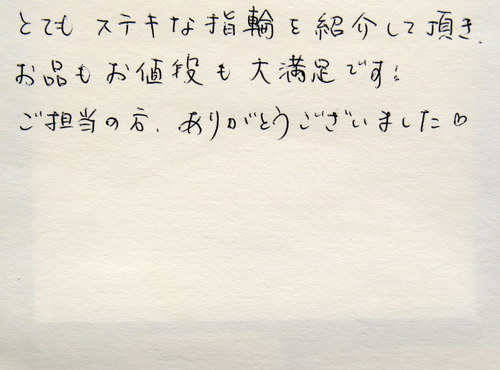 とても ステキな指輪を紹介して頂き、
お品もお値段も大満足です!
ご担当の方、ありがとうございました♡